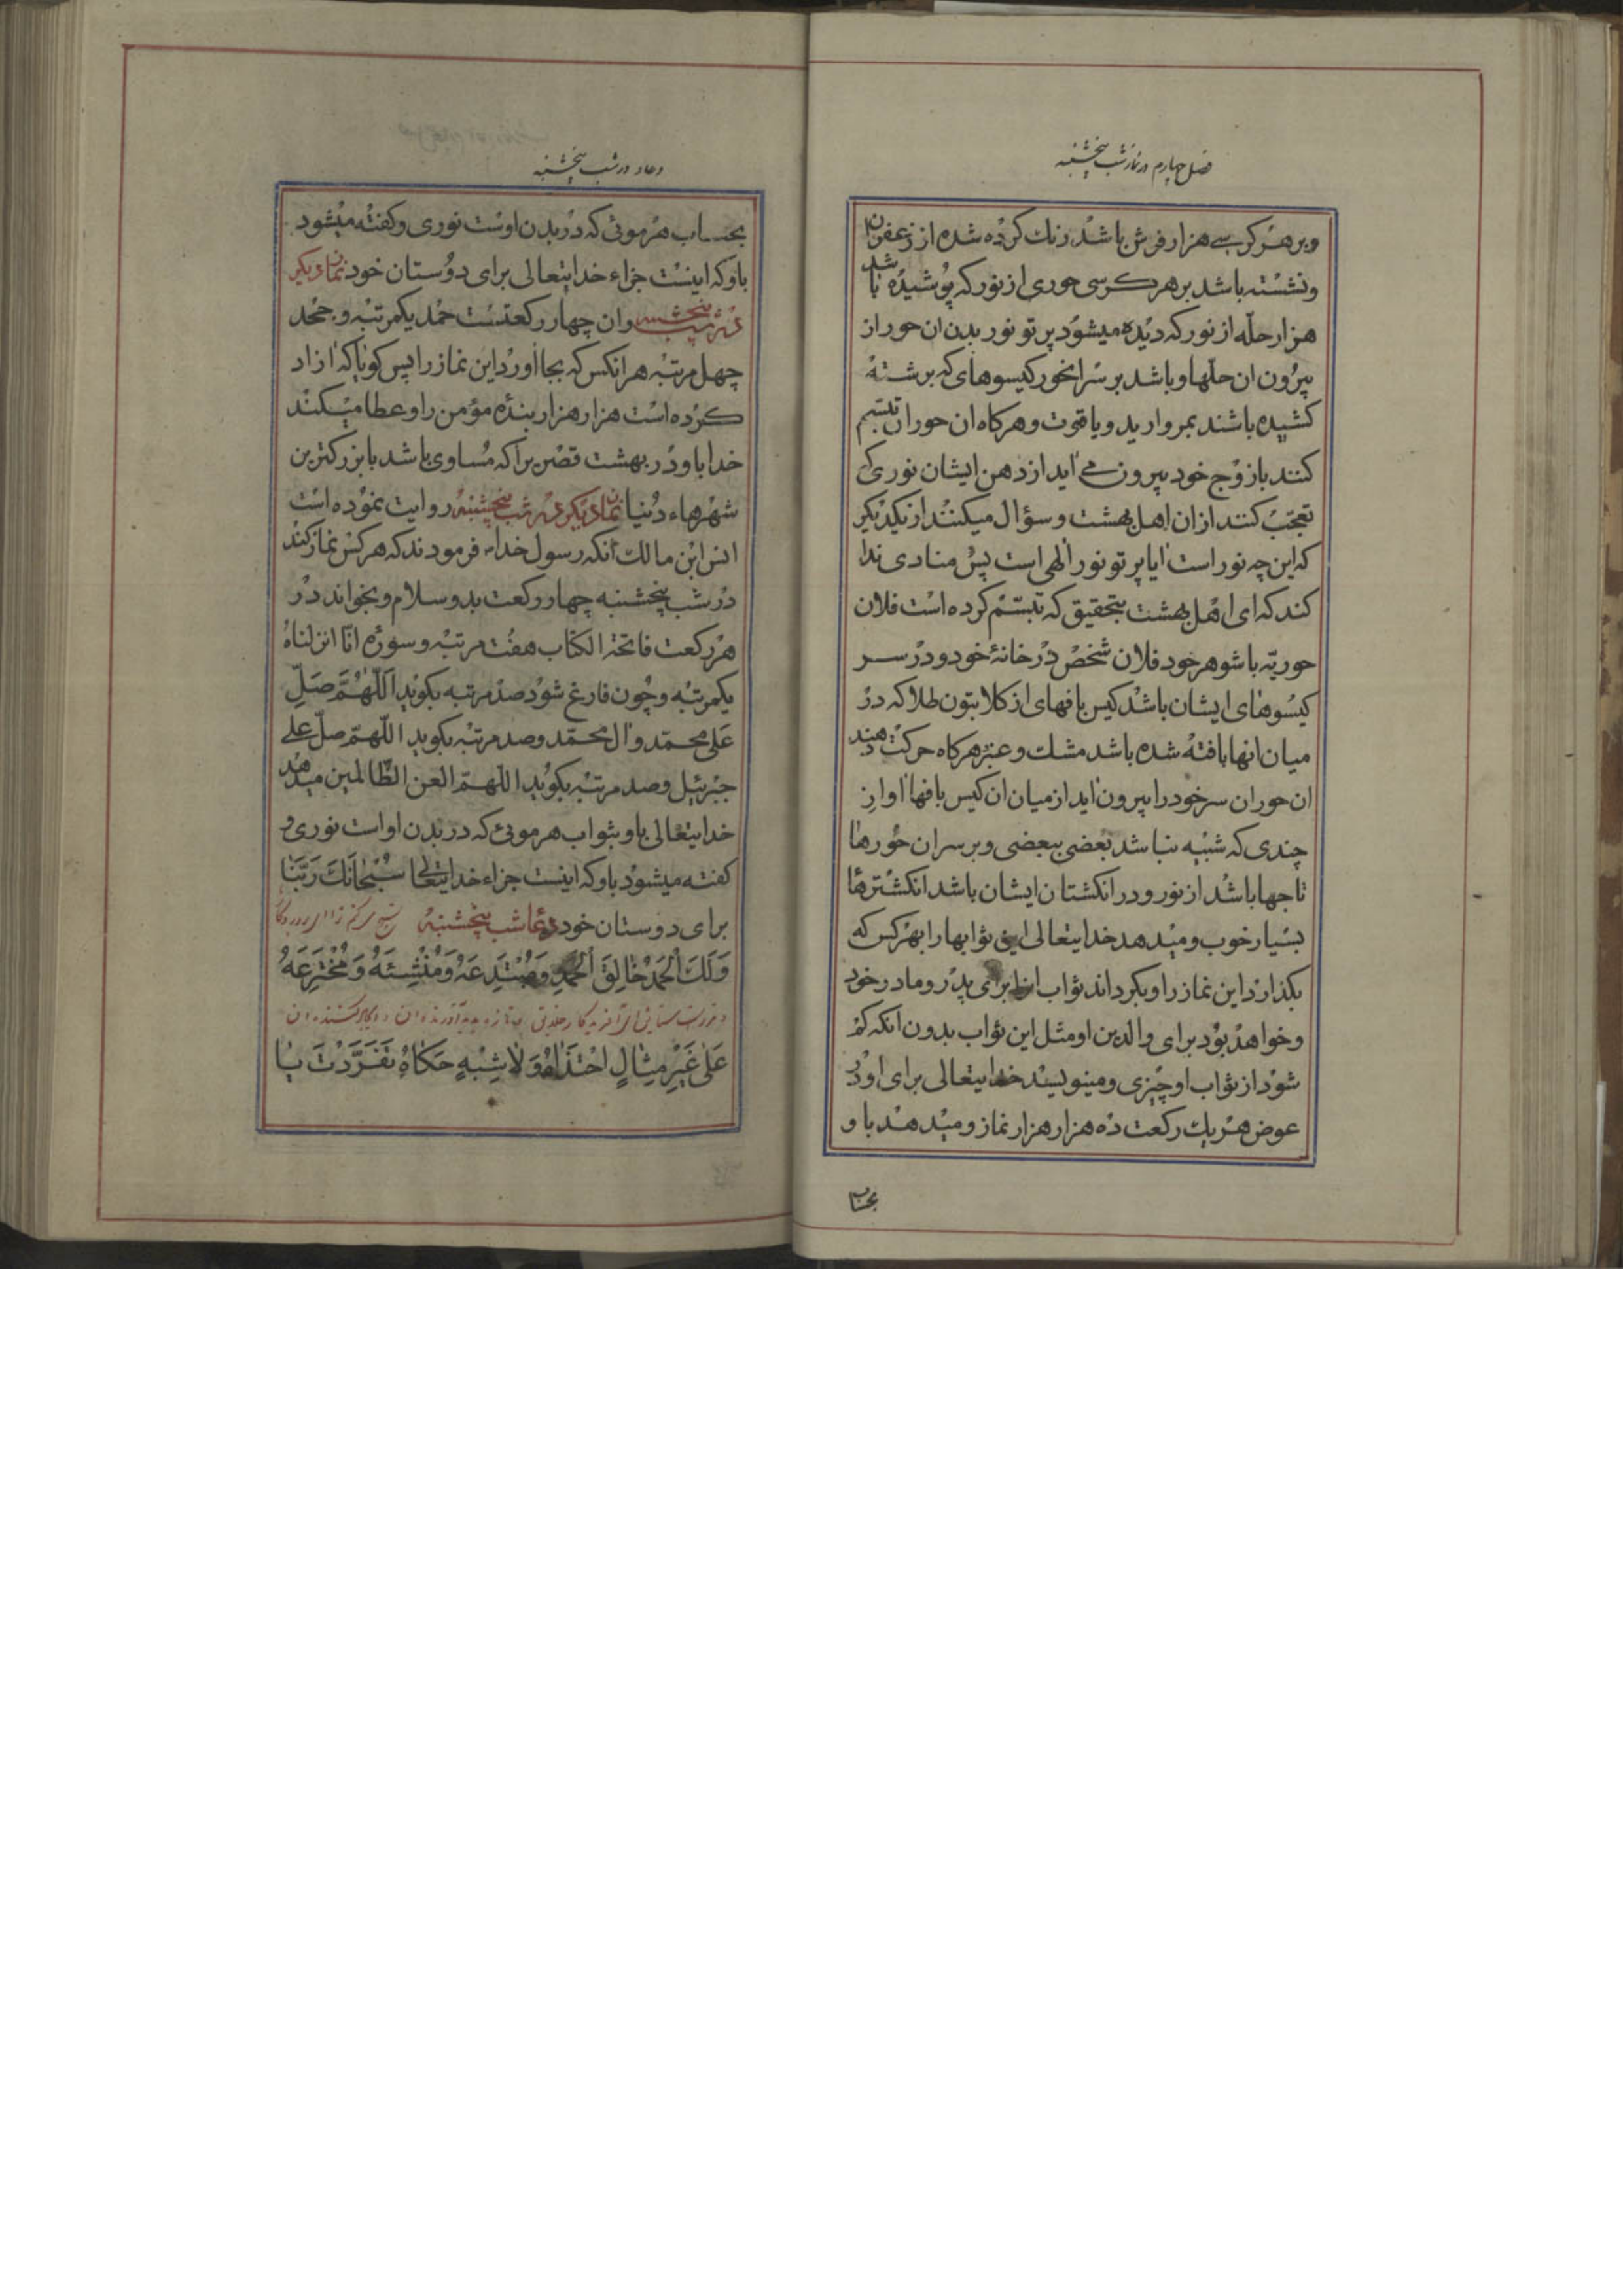 فصل چهارم در نماز شب پنجشنبه
و بر هر کرسے هزار فرش باشد رنك كرده شده از زعفران
و نشسته باشد بر هر كرسی حوری از نور كه پوشیده باشد
هزار حلّه از نور كه دیده میشود پرتو نور بدن ان حور از
بیرون ان حلّها و باشد بر سر انحور كیسوهای كه برشته
كشیده باشند بمروارید و یاقوت و هركاه ان حوران تبسّم
كنند با زوج خود بیرون مے اید از دهن ایشان نوری كه
تعجّب كنند از ان اهل بهشت و سؤال میكنند از یكدیكر
كه این چه نور است ایا پرتو نور الهی است پس منادی ندا
كند كه ای اهل بهشت بتحقیق كه تبسّم كرده است فلان
حوریّه با شوهر خود فلان شخص در خانهٔ خود و در سر
كیسوهای ایشان باشد كیس بافهای از كلابتون طلا كه در
میان انها بافته شده باشد مشك و عنبر هركاه حركت دهند
ان حوران سر خود را بیرون اید از میان ان كیس بافها اوازِ
چندی كه شبیه نباشد بعضی ببعضی و بر سر ان حورها
تاجها باشد از نور و در انكشتان ایشان باشد انكشترها
بسیار خوب و میدهد خدایتعالی این ثوابها را بهر كس كه
بكذارد این نماز را و بكرداند ثواب انرا برای پدر و مادر خود
و خواهد بود برای والدین او مثل این ثواب بدون انكه كم
شود از ثواب او چیزی و مینویسد خدایتعالی برای او در
عوض هر یك ركعت ده هزار هزار نماز و میدهد باو
بحساب
دعاء در شب پنجشنبه
بحساب هر موئی كه در بدن اوست نوری و كفته میشود
باو كه اینست جزاء خدایتعالی برای دوستان خود نماز دیكر
در شب پنجشنبه و ان چهار ركعتست حمد یكمرتبه و جحد
چهل مرتبه هر انكس كه بجا اورد این نماز را پس كویا كه ازاد
كرده است هزار هزار بنده مؤمن را و عطا میكند
خدا باو در بهشت قصریرا كه مساوی باشد با بزركترین
شهرهاء دنیا نماز دیكر در شب پنجشنبه روایت نموده است
انس ابن مالك انكه رسول خدا فرمودند كه هر كس نماز كند
در شب پنجشنبه چهار ركعت بدو سلام و بخواند در
هر ركعت فاتحة الكتاب هفت مرتبه و سوره انّا انزلناه
یكمرتبه و چون فارغ شود صد مرتبه بكوید اَللّٰهُمَّ صَلِّ
عَلی محمّد و ال محمّد و صد مرتبه بكوید اللّهمّ صلّ علے
جبرئیل و صد مرتبه بكوید اللّهمّ العن الظّالمین میدهد
خدایتعالی باو بثواب هر موئی كه در بدن او است نوری و
كفته میشود باو كه اینست جزاء خدایتعالی سُبْحَانَكَ رَبَّنَا
برای دوستان خود دعا شب پنجشنبه
وَلَكَ الْحَمْدُ خَالِقَ الْحَمْدِ وَمُبْتَدِعَهُ وَمُنْشِئَهُ وَمُخْتَرِعَهُ
عَلیٰ غَیْرِ مِثَالٍ احْتَذَاهُ وَلَا شِبْهٍ حَكَاهُ تَفَرَّدْتَ یَا